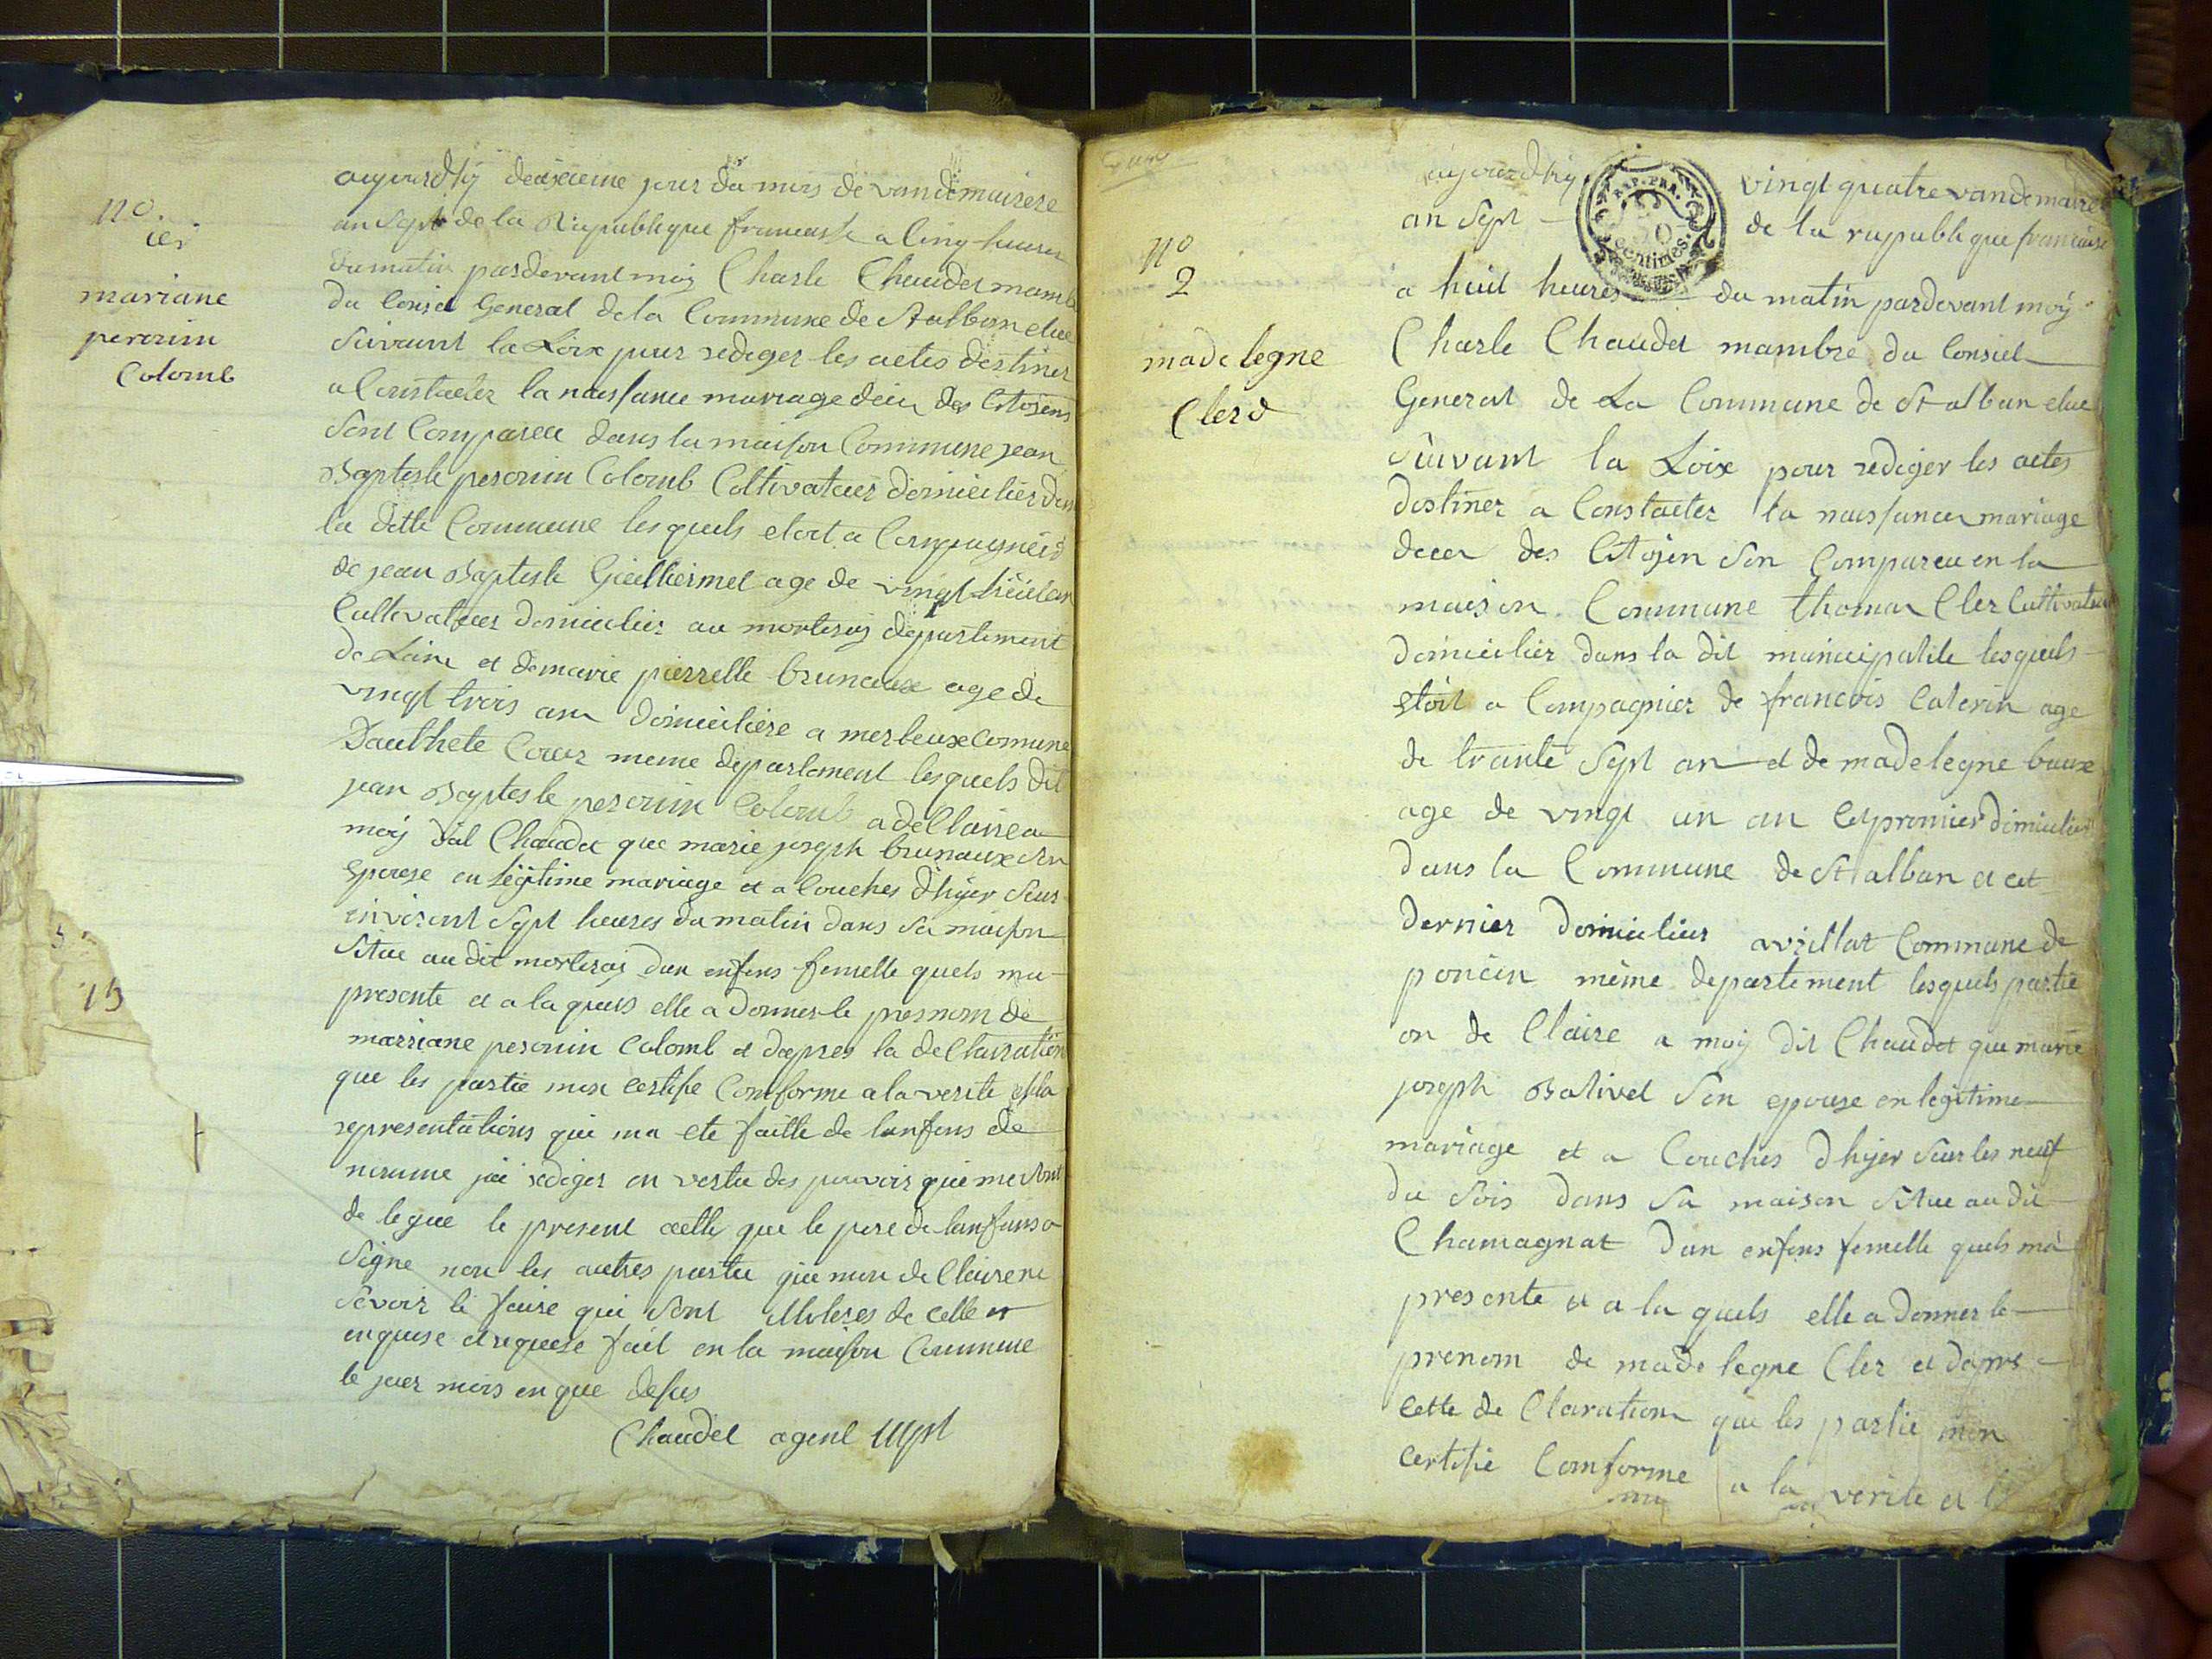 no
ier
mariane
perouin
Colomb
aujourdhÿ deuxieme jour du mois de vandemaisere
an Sept de la Republique francaise a Cinq heures
du matin pardevant moÿ Charle Chaudet mamb
du Consiel General de la Commune de St alban elue
Suivant la Loix pour rediger les actes destiner
a Constacter la naissance mariage deces des Citojens
Sont Comparee dans la maison Commune jean
Bapteste perouin Colomb Coltivateur domicilier dan
la ditte Commune les quels etoit a Compagnier
de jean Bapteste Guilliermet age de vingt huit an
Cultivateur domicilier au morteray departement
de Lain et de marie pierrette brunaux age de
vingt trois an domiciliere a merleux Comune
Dauthete Cour meme departement lesquels dit
jean Bapteste perouin Colomb a de Claire a
moÿ dit Chaudet que marie joseph brunaux son
Epouse en legitime mariage et a Couches dhyer Sur
environt Sept heures du matin dans Sa maison
Situe au dit morteray dun enfens femelle quels ma
presente et a la quels elle a donner le presnom de
marriane perouin Colomb et dapres la de Claration
que les partie mon certifie Comforme a la verite et la
representations qui ma ete faitte de lenfens de
nomme jai rediger en vertu des pouvoir qui me sont
de legue le present actte que le pere de lenfans a
Signe non les autres partie qui mon de Clairene
Savoir le faire qui Sont Materes de celle
enquise et requise fait en la maison Commune
le jour mois en que desus
Chaudet agent mpl
no
2
made legne
Clerd
aujourdhÿ vingt quatre vandemaire
an Sept de la rupublique francaise
REP. FRA.
50
centimes.
a huit heures du matin pardevant moÿ
Charle Chaudet mambre du Consiel
General de La Commune de St alban elue
Suivant la Loix pour rediger les actes
destiner a Constacter la naissances mariage
deces des Citojen Son Compareu en la
maison Commune thomas Cler Cultivateur
domicilier dans la dit municipalite lesquels
Etoit a Compagnier de francois Caterin age
de trante Sept an et de madelegne baux
age de vingt un an Cet premier dimicilier
dans la Commune de St alban et cet
dernier domicilier avrillat Commune de
poncin même departement lesquels partie
on de Claire a moÿ dit Chaudet que marie
joseph Balivet Son epouse en legitime
mariage et a Couches dhyer Sur les neuf
du Sois dans Sa maison Situe au dit
Chamagnat dun enfens femelle quels ma
presente et a la quels elle a donner le
prenom de made legne Cler et dapres
cette de Claration que les partie mon
certifie Comforme a la verite et l